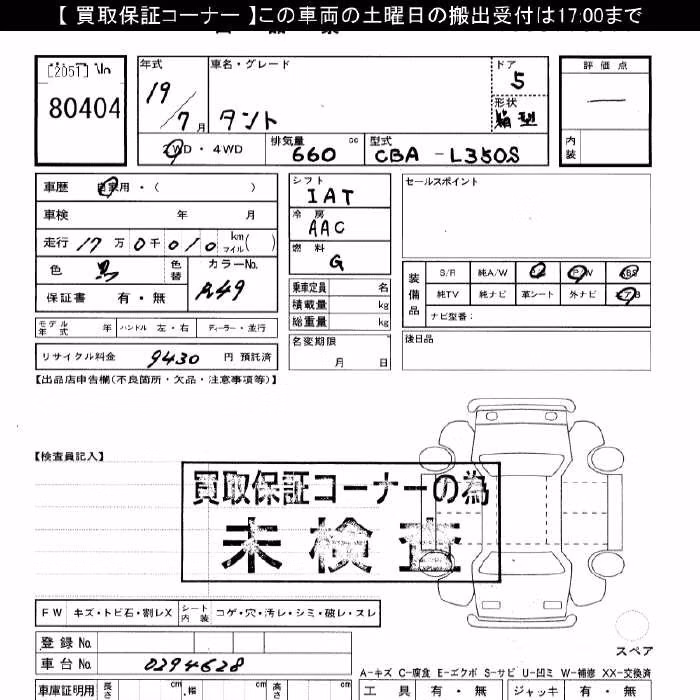 【 買取保証コーナー 】この車両の土曜日の搬出受付は17:00まで
[2051] No
80404
年式
19/7月
車名・グレード
タント
ドア
5
形状
箱型
評価点
—
内装
2WD・4WD
排気量
660 cc
型式
CBA-L350S
車歴 自家用・( )
車検 年 月
走行 17万0千010 km マイル( )
色 黒 色替
カラーNo.
A49
保証書 有・無
モデル年式 年 ハンドル 左・右 ディーラー・並行
リサイクル料金 9430 円 預託済
シフト
IAT
冷房
AAC
燃料
G
乗車定員 名
積載量 kg
総重量 kg
名変期限
月 日
セールスポイント
装備品
S/R 純A/W P/S P/W ABS
純TV 純ナビ 革シート 外ナビ エアB
ナビ型番:
後日品
【出品店申告欄(不良箇所・欠品・注意事項等)】
【検査員記入】
買取保証コーナーの為
未検査
FW キズ・トビ石・割レX シート内装 コゲ・穴・汚レ・シミ・破レ・スレ
登録 No.
車台 No. 0294628
スペア
A-キズ C-腐食 E-エクボ S-サビ U-凹ミ W-補修 XX-交換済
車庫証明用 長さ cm 幅 cm 高さ cm
工具 有・無 ジャッキ 有・無